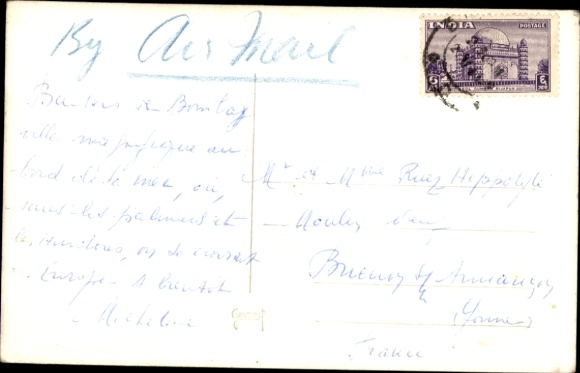 By Air Mail
INDIA POSTAGE
Baisers de Bombay
ville magnifique au
bord de la mer, où,
sous les palmiers et
les lumières, on se croirait
Europe. A bientôt
Micheline
Mr et Mme Ruez Hippolyte
Moulin
Brienon sf Armançon
(Yonne)
France